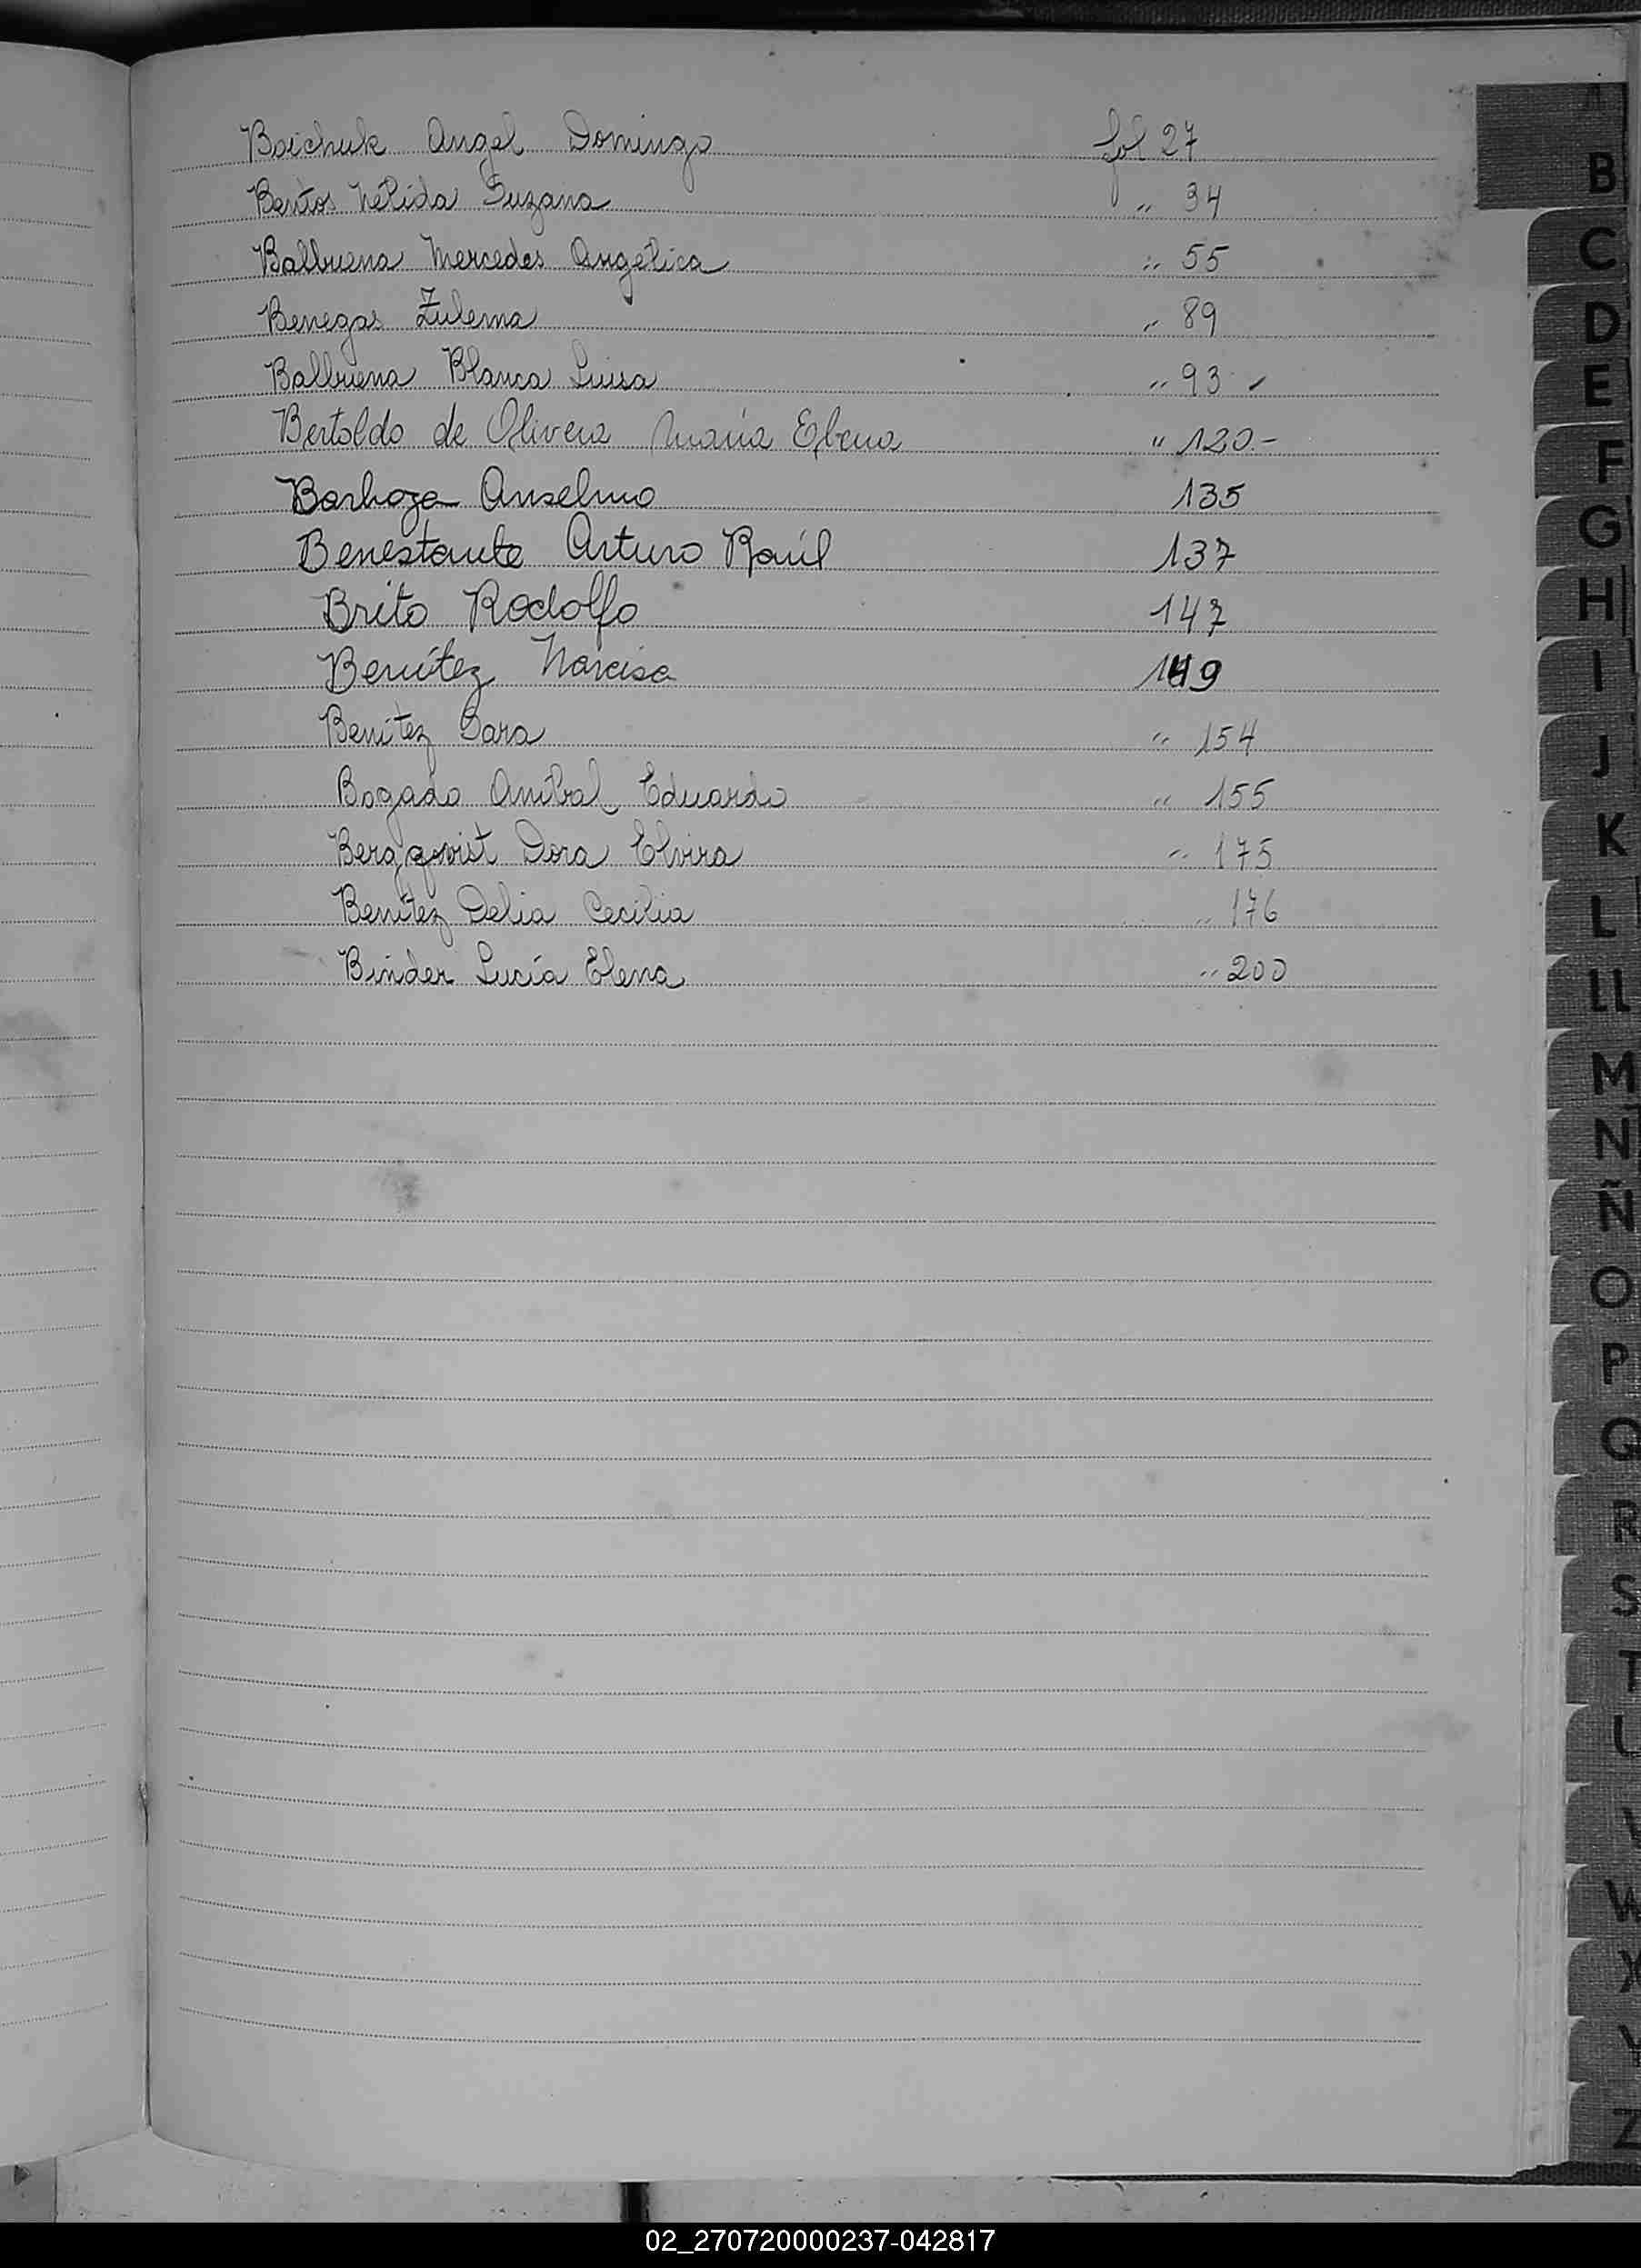 Boichuk Angel Domingo fol 27
Bentos Nélida Suzana " 34
Balbuena Mercedes Angélica " 55
Benegas Zulema " 89
Balbuena Blanca Luisa " 93 -
Bertoldo de Olivera María Elena " 120.-
Barboza Anselmo 135
Benestante Arturo Raúl 137
Brito Rodolfo 147
Benítez Narcisa 149
Benítez Sara " 154
Bogado Aníbal Eduardo " 155
Bergqvist Dora Elvira " 175
Benítez Delia Cecilia " 176
Binder Lucía Elena " 200
B
C
D
E
F
G
H
I
J
K
L
LL
M
N
Ñ
O
P
Q
R
S
T
U
V
W
X
Y
Z
02_270720000237-042817